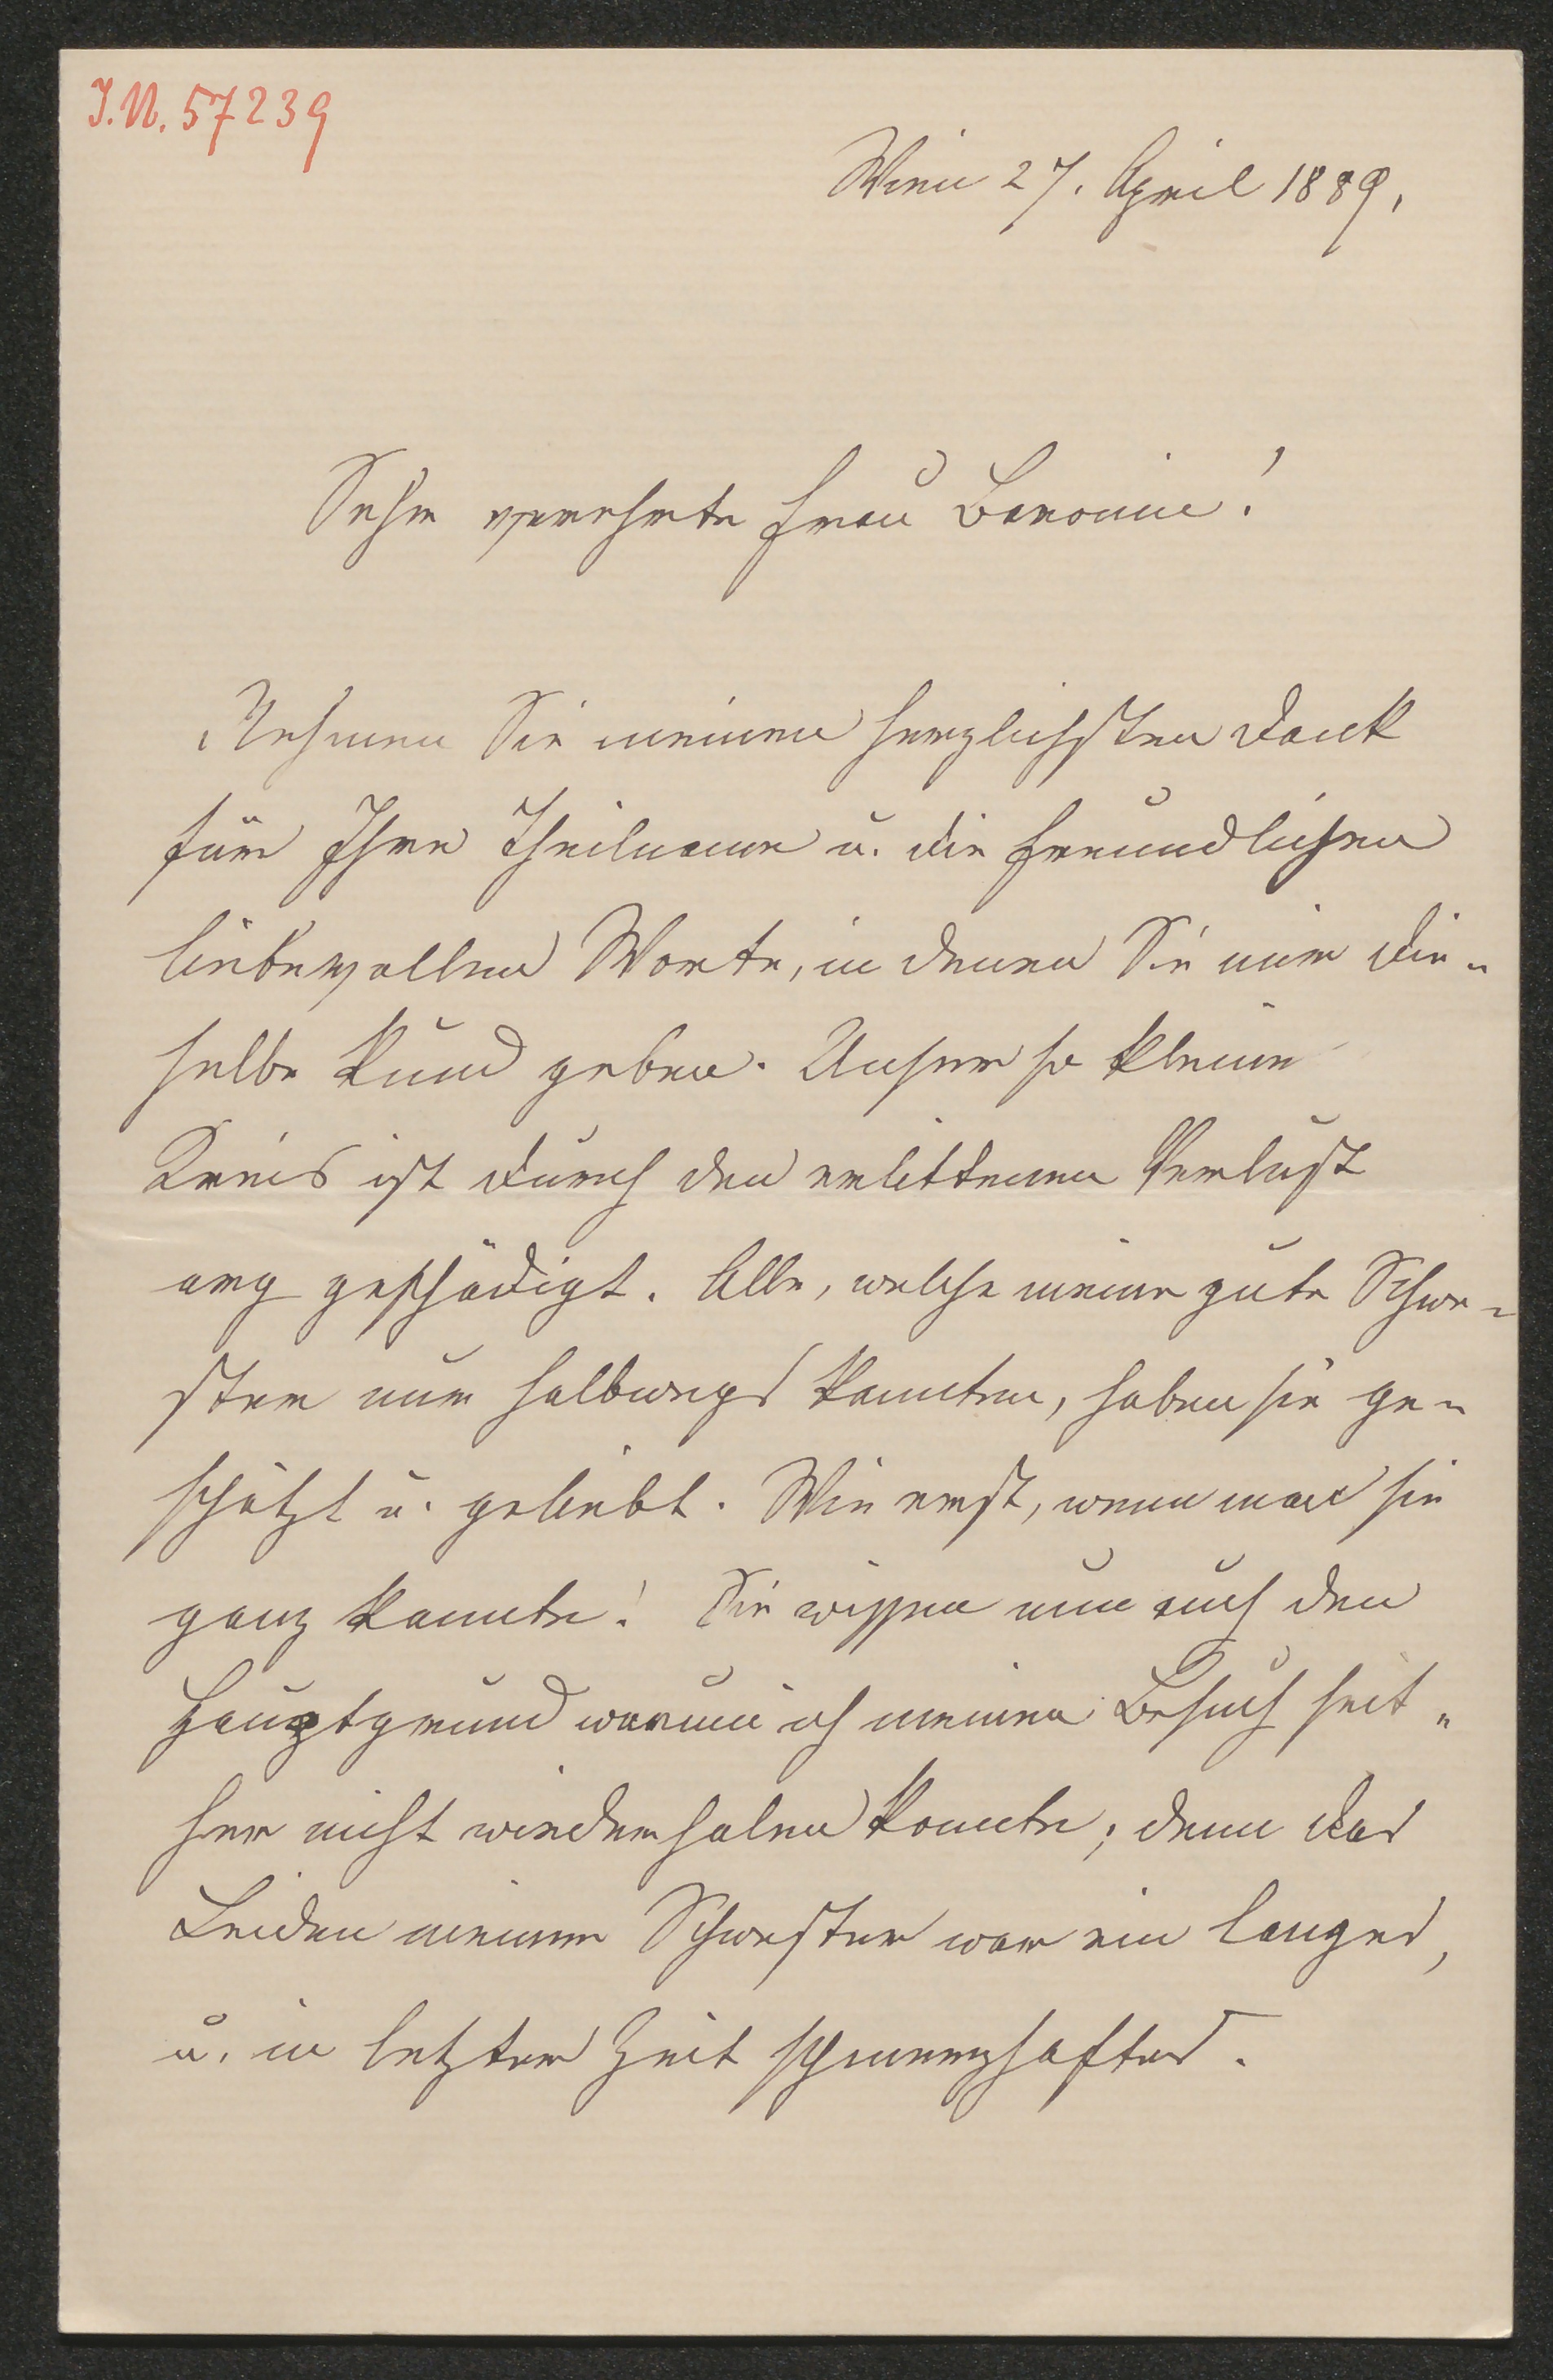 I.N. 57239
Wien 27. April 1889.
Sehr verehrte Frau Baronin!
Nehmen Sie meinen herzlichsten Dank
für Ihre Theilname u. die freundlichen
liebevollen Worte, in denen Sie mir die-
selbe kund geben. Unser so kleine
Kreis ist durch den erlittenen Verlust
arg geschädigt. Alle, welche meine gute Schwe-
ster nur halbwegs kannten, haben sie ge-
schätzt u. geliebt. Wie erst, wenn man sie
ganz kannte! Sie wissen nun auch den
Hauptgrund warum ich meinen Besuch seit-
her nicht wiederholen konnte; denn das
Leiden meiner Schwester war ein langes,
u. in letzter Zeit schmerzhaftes.